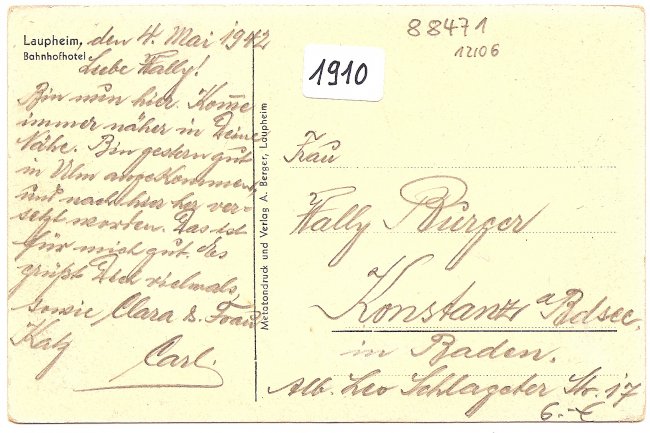 88471
12106
1910
Laupheim, den 4. Mai 1942
Bahnhofhotel
Liebe Wally!
Bin nun hier. Komme
immer näher in Deine
Nähe. Bin gestern gut
in Ulm angekommen
und nach hier her ver-
setzt worden. Das ist
für mich gut. Es
grüßt Dich vielmals
sowie Clara & Frau
Katz
Carl.
Metatondruck und Verlag A. Berger, Laupheim
Frau
Wally Burger
Konstanz a Bdsee.
in Baden.
Alb. Leo Schlageter Str. 17
6.-€